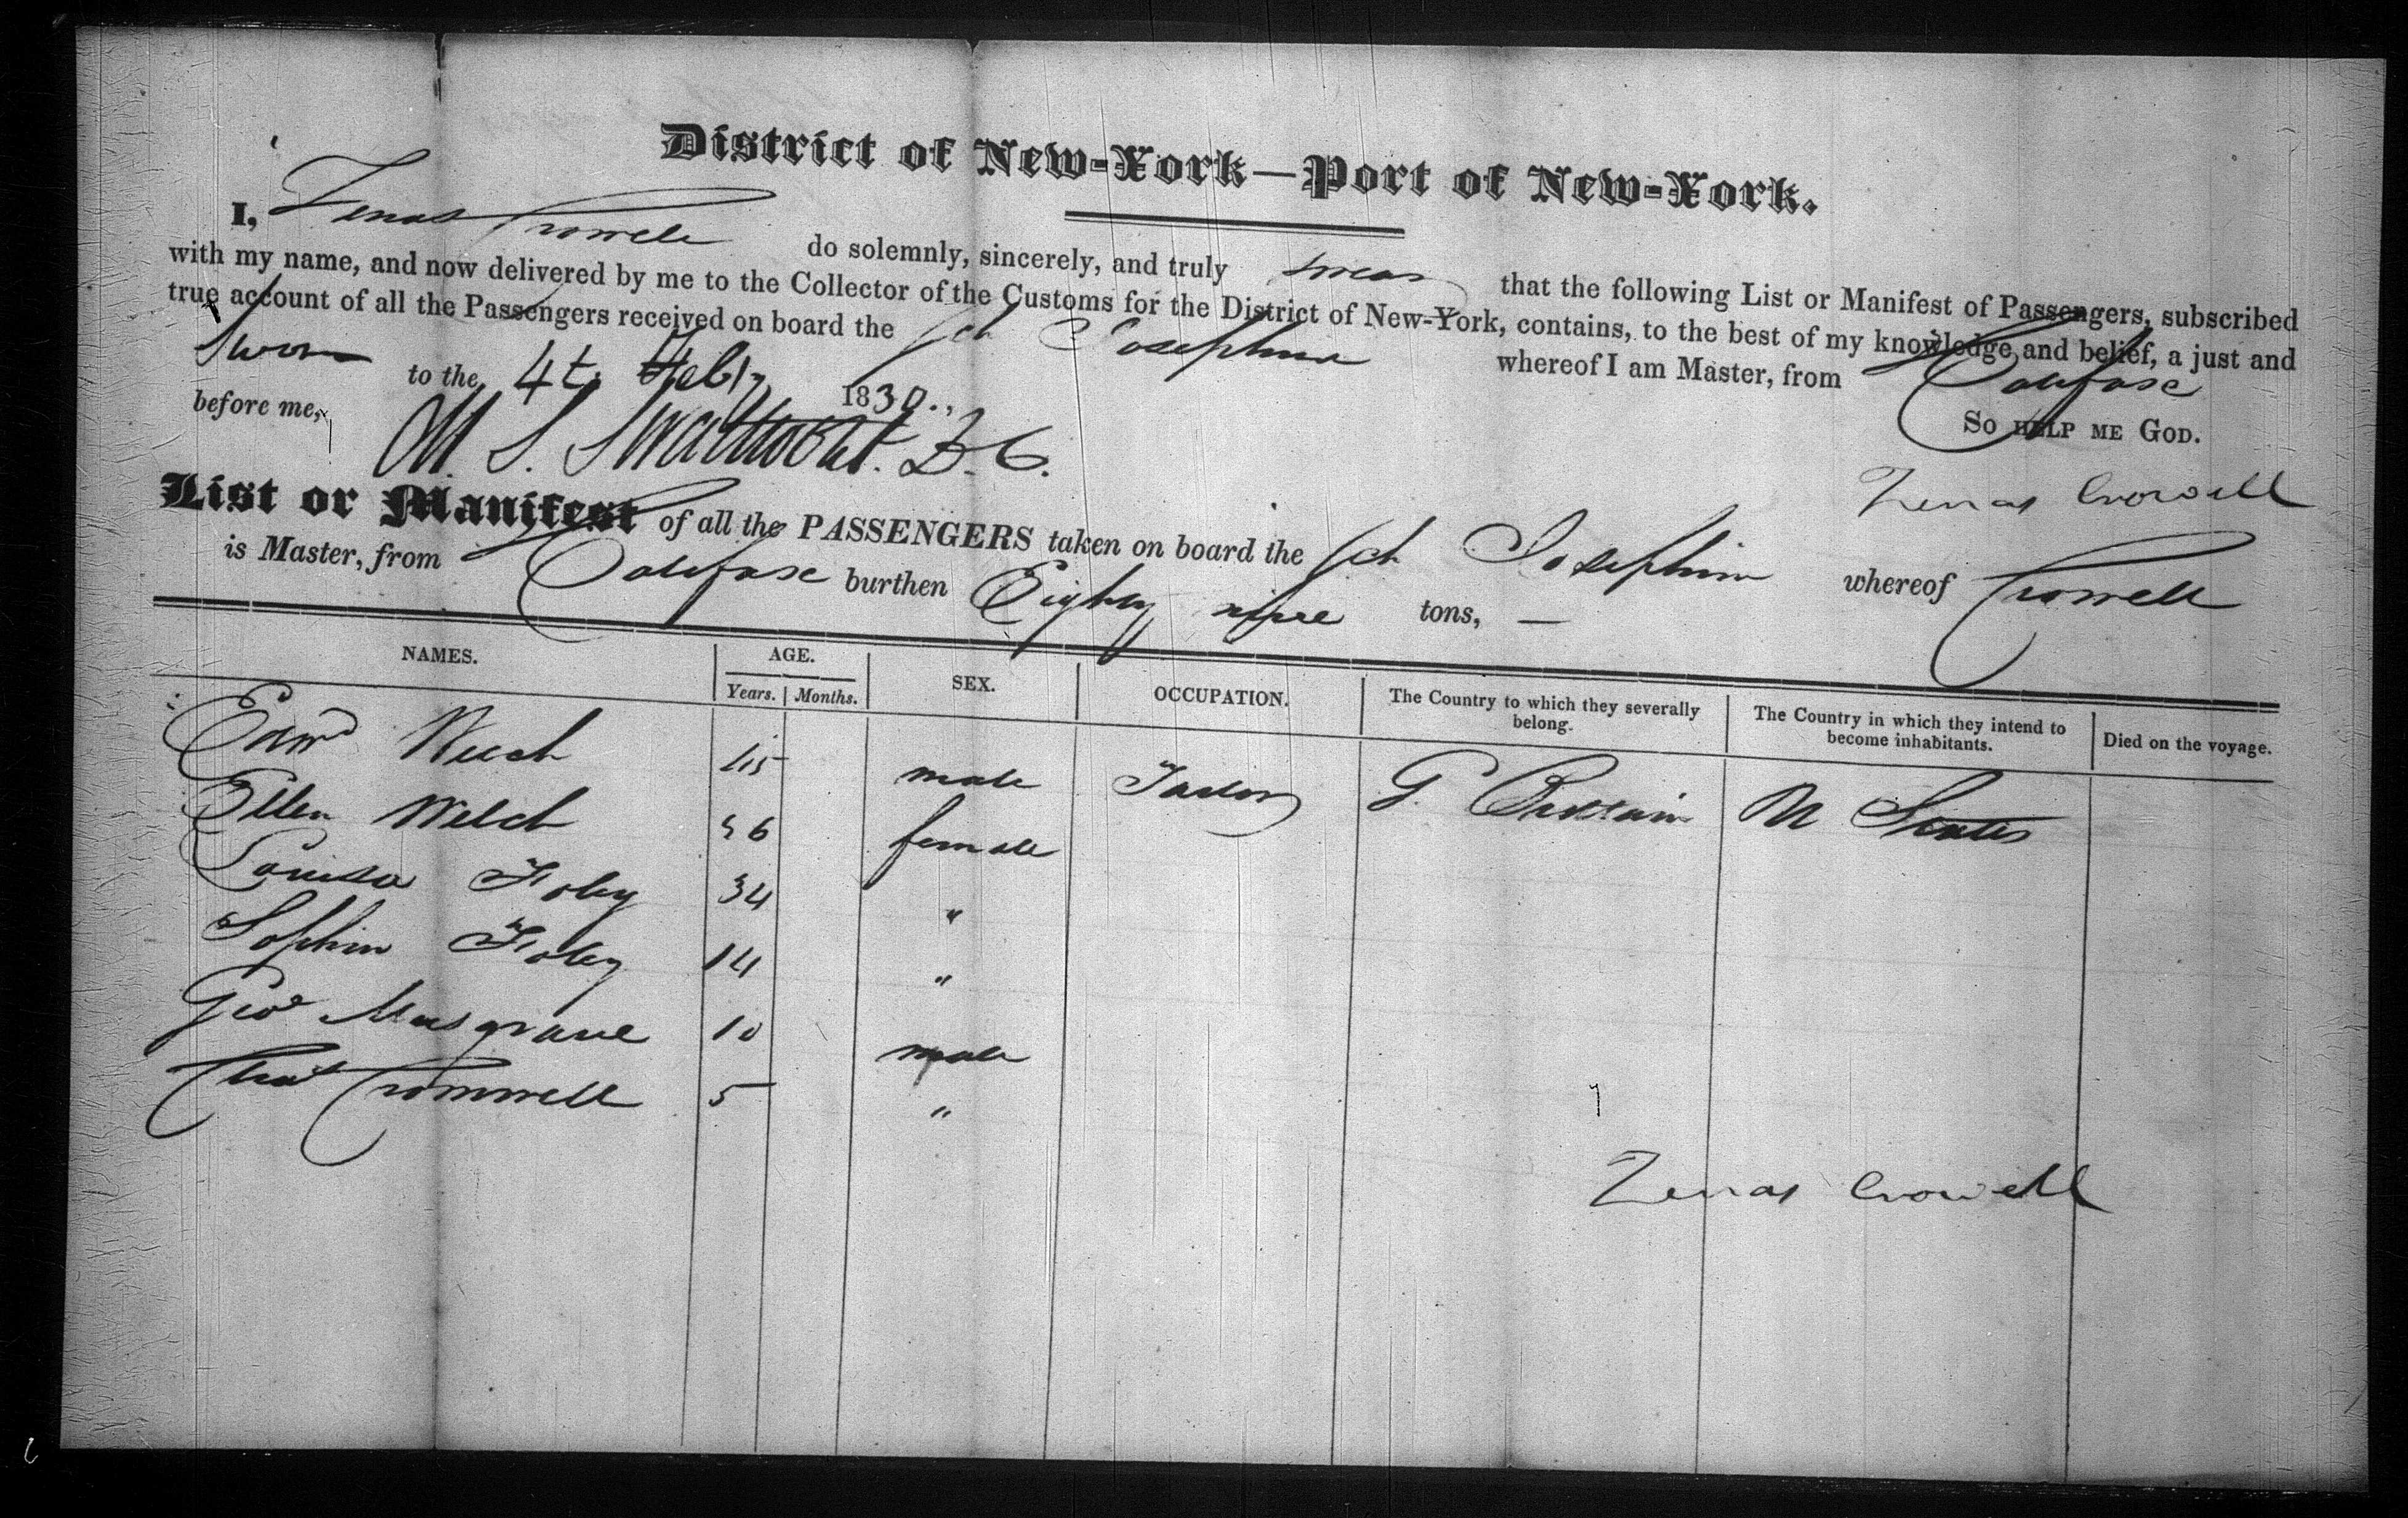 District of New-York—Port of New-York.
I, Zenas Crowell do solemnly, sincerely, and truly swear that the following List or Manifest of Passengers, subscribed
with my name, and now delivered by me to the Collector of the Customs for the District of New-York, contains, to the best of my knowledge and belief, a just and
true account of all the Passengers received on board the Sch Josephine whereof I am Master, from Halifax
Sworn to the 4th Feby 1830. So help me God.
before me, M. S. Swartwout. D. C.
Zenas Crowell
List or Manifest of all the PASSENGERS taken on board the Sch Josephine whereof Crowell
is Master, from Halifax burthen Eighty nine tons, —
NAMES. AGE. SEX. OCCUPATION. The Country to which they severally belong. The Country in which they intend to become inhabitants. Died on the voyage.
Years. Months.
Edwd Welch 45 male G. Brittain U States
Ellen Welch 36 female
Louisa Foley 34 "
Sophia Foley 14 "
Geo Musgrave 10 male
Chas Cromwell 5 "
Zenas Crowell